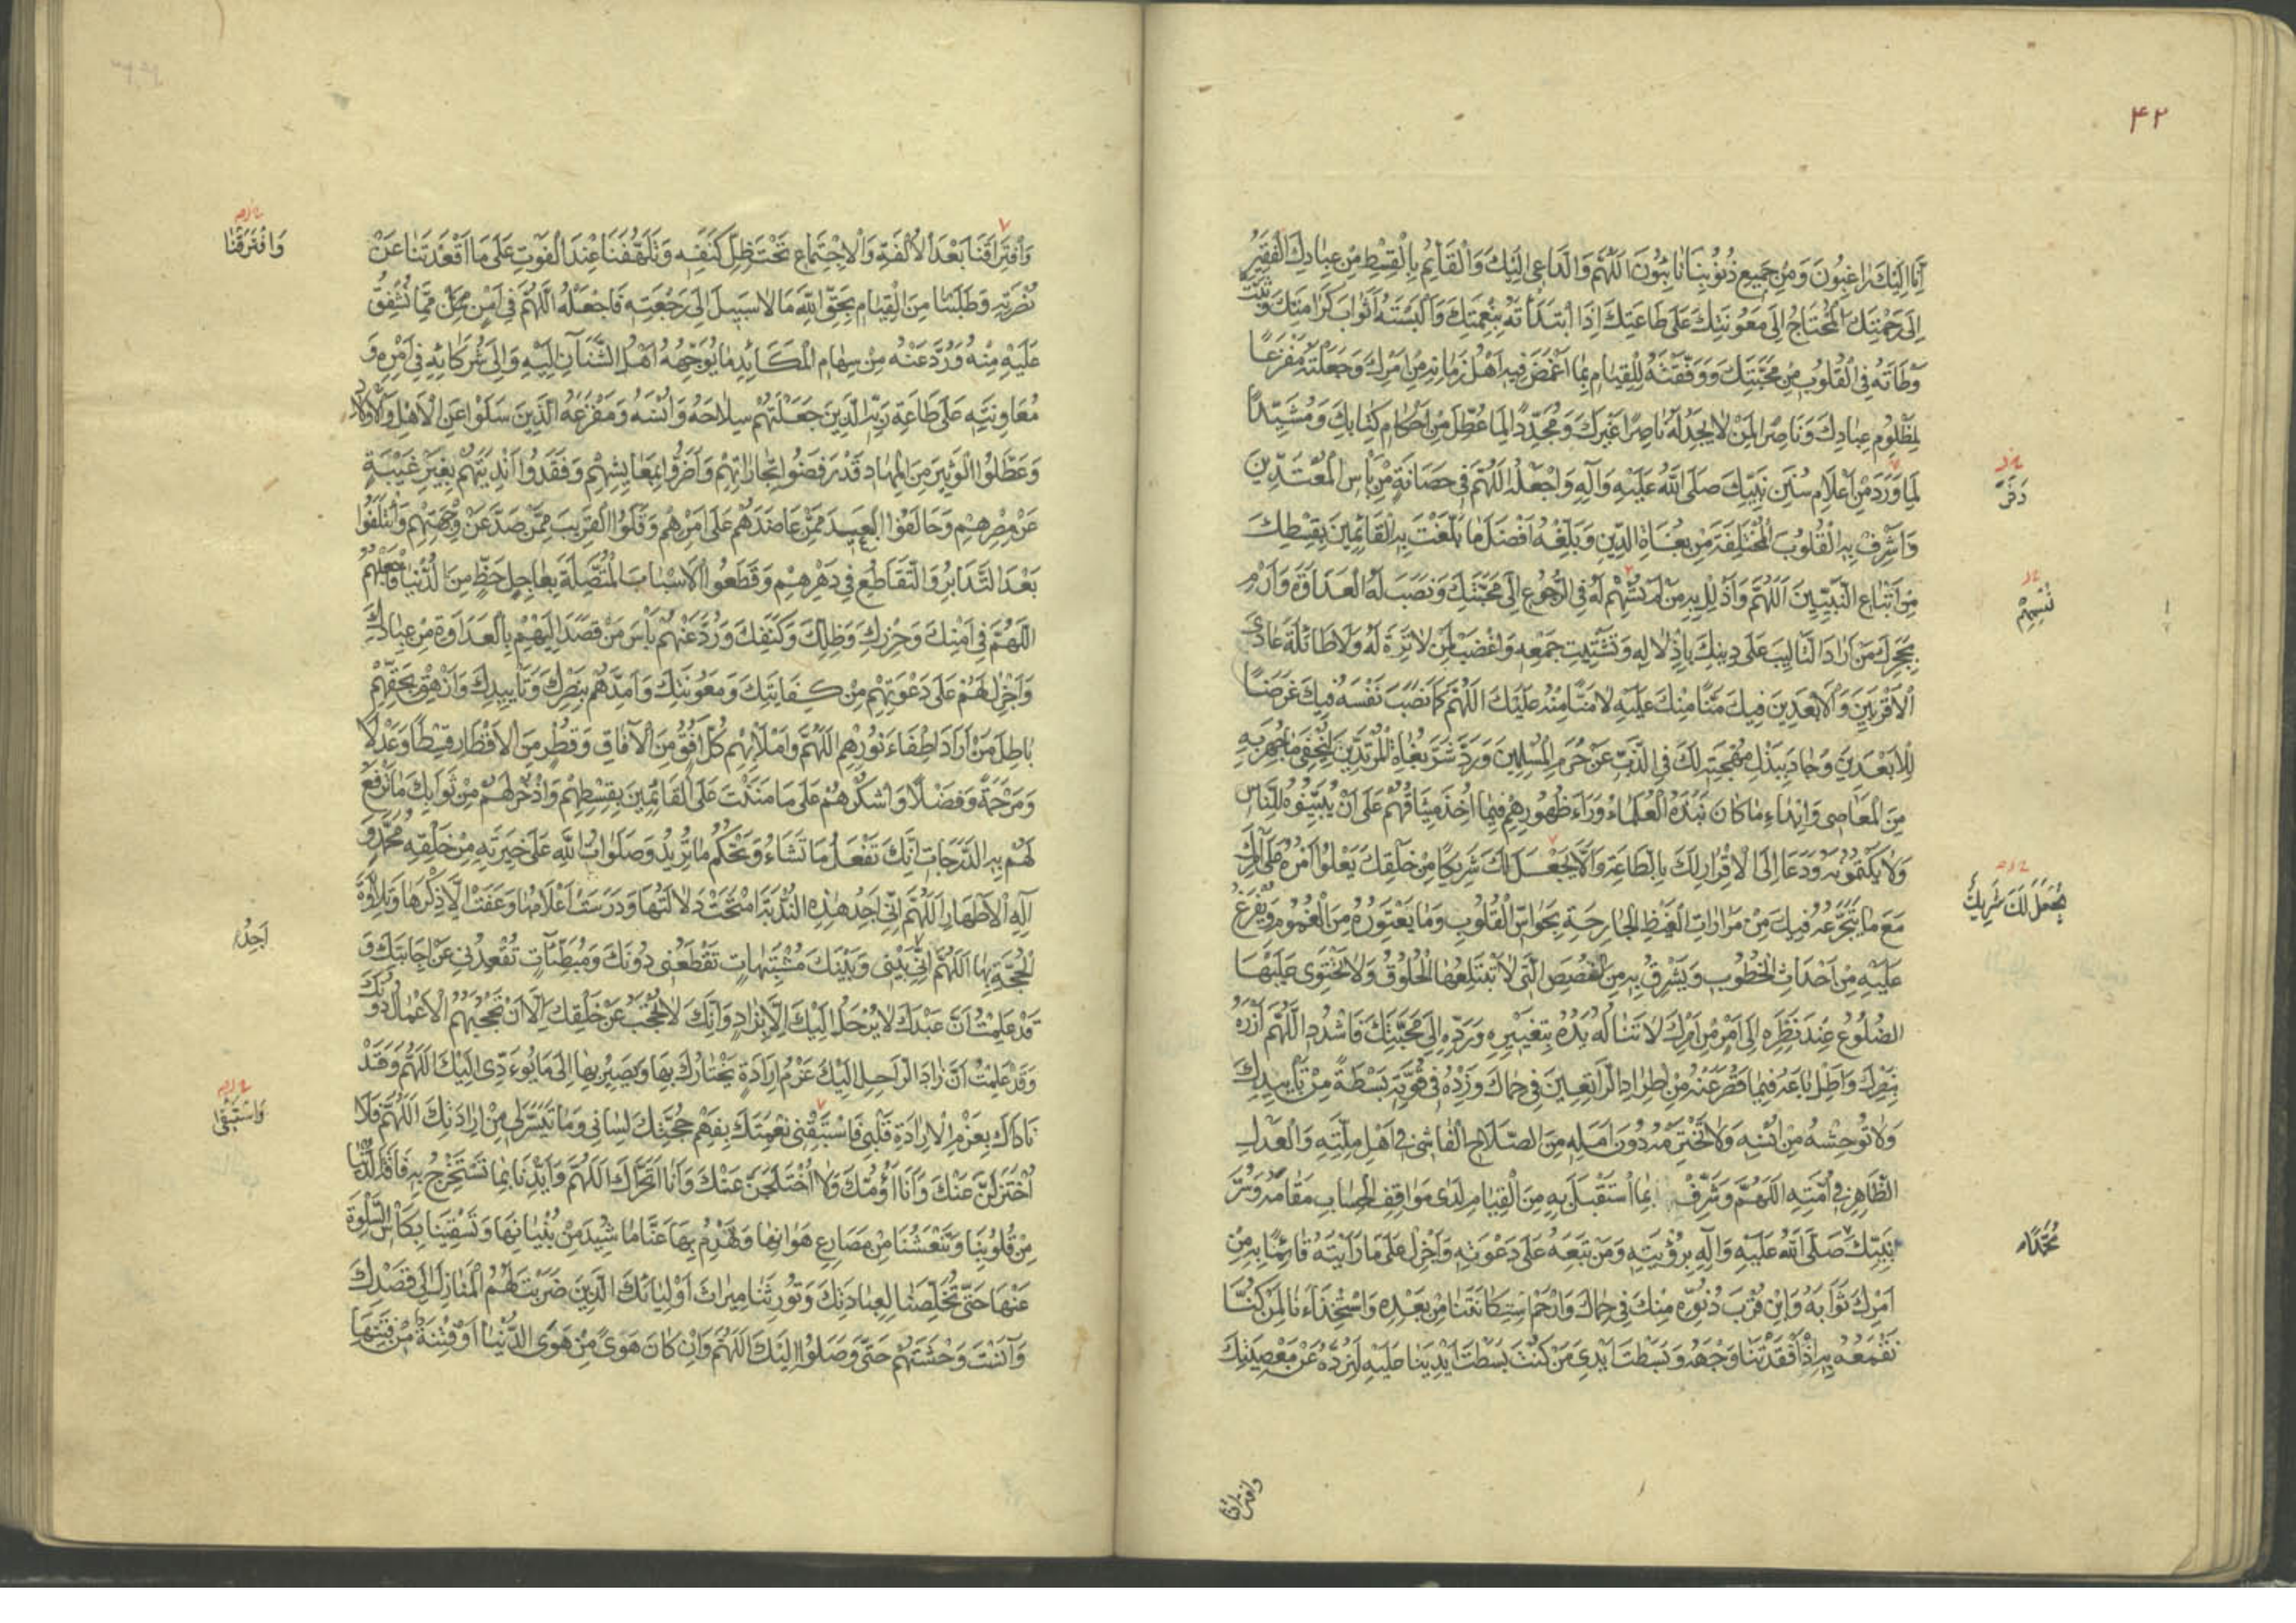 ۴۲
اِنَّا اِلَيْكَ رٰاغِبُونَ وَمِنْ جَمِيعِ ذُنُوْبِنَا تٰائِبُونَ اَللّٰهُمَّ وَالدَّاعِى اِلَيْكَ وَالْقَائِمُ بِالْقِسْطِ مِنْ عِبٰادِكَ الْفَقِيرُ
اِلٰى رَحْمَتِكَ الْمُحْتٰاجُ اِلٰى مَعُونَتِكَ عَلٰى طَاعَتِكَ اِذَا ابْتَدَأْتَهُ بِنِعْمَتِكَ وَاَلْبَسْتَهُ اَثْوٰابَ كَرٰامَتِكَ وَثَبَّتَّ
وَطْاَتَهُ فِى الْقُلُوبِ مِنْ مَحَبَّتِكَ وَوَفَّقْتَهُ لِلْقِيٰامِ بِمٰا اَغْمَضَ فِيهِ اَهْلُ زَمٰانِهِ مِنْ اَمْرِكَ وَجَعَلْتَهُ مَفْزَعًا
لِمَظْلُومِ عِبٰادِكَ وَنَاصِرًا لِمَنْ لٰا يَجِدُ لَهُ نٰاصِرًا غَيْرَكَ وَمُجَدِّدًا لِمٰا عُطِّلَ مِنْ اَحْكٰامِ كِتٰابِكَ وَمُشَيِّدًا
لِمٰا وَرَدَ مِنْ اَعْلٰامِ سُنَنِ نَبِيِّكَ صَلَّى اللّٰهُ عَلَيْهِ وَاٰلِهِ وَاجْعَلْهُ اللّٰهُمَّ فِى حَصَانَةٍ مِنْ بَأْسِ الْمُعْتَدِينَ
وَاَشْرِقْ بِهِ الْقُلُوبَ الْمُخْتَلِفَةَ مِنْ بُغٰاةِ الدِّينِ وَبَلِّغْهُ اَفْضَلَ مٰا بَلَّغْتَ بِهِ الْقَائِمِينَ بِقِسْطِكَ
مِنْ اَتْبٰاعِ النَّبِيِّينَ اَللّٰهُمَّ وَاَذْلِلْ بِهِ مَنْ لَمْ تُسْهِمْ لَهُ فِى الرُّجُوعِ اِلٰى مَحَبَّتِكَ وَنَصَبَ لَهُ الْعَدَاوَةَ وَارْمِ
بِحَجَرِكَ مَنْ اَرٰادَ التَّاْلِيبَ عَلٰى دِينِكَ بِاِذْلٰالِهِ وَتَشْتِيتِ جَمْعِهِ وَاغْضَبْ لِمَنْ لٰا تِرَةَ لَهُ وَلٰا طٰائِلَةَ عٰادَى
الْاَقْرَبِينَ وَالْاَبْعَدِينَ فِيكَ مَنًّا مِنْكَ عَلَيْهِ لٰا مَنًّا مِنْهُ عَلَيْكَ اَللّٰهُمَّ كَمٰا نَصَبَ نَفْسَهُ فِيكَ غَرَضًا
لِلْاَبْعَدِينَ وَجٰادَ بِبَذْلِ مُهْجَتِهِ لَكَ فِى الذَّبِّ عَنْ حَرِيمِ الْمُسْلِمِينَ وَرَدَّ شَرَّ بُغٰاةِ الْمُرْتَدِّينَ لِيُخْفَى مٰا جُهِرَ بِهِ
مِنَ الْمَعٰاصِى وَاِبْدٰاءِ مٰا كٰانَ نَبَذَهُ الْعُلَمٰاءُ وَرٰاءَ ظُهُورِهِمْ فِيمٰا اُخِذَ مِيثٰاقُهُمْ عَلٰى اَنْ يُبَيِّنُوهُ لِلنّٰاسِ
وَلٰا يَكْتُمُوهُ وَدَعٰا اِلَى الْاِقْرٰارِ لَكَ بِالطَّاعَةِ وَاَلَّا يَجْعَلَ لَكَ شَرِيكًا مِنْ خَلْقِكَ يَعْلُو اَمْرُهُ عَلٰى اَمْرِكَ
مَعَ مٰا يَتَجَرَّعُهُ فِيكَ مِنْ مَرٰارٰاتِ الْغَيْظِ الْجٰارِحَةِ بِحَوٰاسِّ الْقُلُوبِ وَمٰا يَعْتَوِرُهُ مِنَ الْغُمُومِ وَيَفْرُغُ
عَلَيْهِ مِنْ اَحْدٰاثِ الْخُطُوبِ وَيَشْرَقُ بِهِ مِنَ الْغُصَصِ الَّتِى لٰا تَبْتَلِعُهَا الْحُلُوقُ وَلٰا تَحْتَوِى عَلَيْهَا
الضُّلُوعُ عِنْدَ نَظَرِهِ اِلٰى اَمْرٍ مِنْ اَمْرِكَ لٰا تَنٰالُهُ يَدُهُ بِتَغْيِيرِهِ وَرَدِّهِ اِلٰى مَحَبَّتِكَ فَاشْدُدِ اللّٰهُمَّ اَزْرَهُ
بِنَصْرِكَ وَاَطِلْ بٰاعَهُ فِيمٰا قَصُرَ عَنْهُ مِنْ اِطْرٰادِ الرَّاتِعِينَ فِى حِمٰاكَ وَزِدْهُ فِى قُوَّتِهِ بَسْطَةً مِنْ تَأْيِيدِكَ
وَلٰا تُوحِشْهُ مِنْ اُنْسِهِ وَلٰا تَخْتَرِمْهُ دُونَ اَمَلِهِ مِنَ الصَّلٰاحِ الْفٰاشِى فِى اَهْلِ مِلَّتِهِ وَالْعَدْلِ
الظَّاهِرِ فِى اُمَّتِهِ اَللّٰهُمَّ وَشَرِّفْ بِمَا اسْتَقْبَلَ بِهِ مِنَ الْقِيٰامِ لَدٰى مَوٰاقِفِ الْحِسٰابِ مَقٰامَهُ وَسُرَّ
نَبِيَّكَ صَلَّى اللّٰهُ عَلَيْهِ وَاٰلِهِ بِرُؤْيَتِهِ وَمَنْ تَبِعَهُ عَلٰى دَعْوَتِهِ وَاَجْزِلْ عَلٰى مٰا رَاَيْتَهُ قٰائِمًا بِهِ مِنْ
اَمْرِكَ ثَوٰابَهُ وَابِنْ قُرْبَ دُنُوِّهِ مِنْكَ فِى حِمٰاكَ وَارْحَمِ اسْتِكٰانَتَنٰا مِنْ بَعْدِهِ وَاسْتِخْذٰاءَنٰا لِمَنْ كُنَّا
نَقْمَعُهُ بِهِ اِذْ اَفْقَدْتَنٰا وَجْهَهُ وَبَسَطْتَ اَيْدِىَ مَنْ كُنْتَ بَسَطْتَ اَيْدِيَنٰا عَلَيْهِ لِنَرُدَّهُ عَنْ مَعْصِيَتِكَ
وافتراقنا
نُسْهِمْ
يُجْعَلَ لَكَ شَرِيكٌ
مُحَمَّدًا
وَافْتِرٰاقَنَا بَعْدَ الْاُلْفَةِ وَالْاِجْتِمٰاعِ تَحْتَ ظِلِّ كَنَفِهِ وَتَلَهُّفَنَا عِنْدَ الْفَوْتِ عَلٰى مٰا اَقْعَدْتَنٰا عَنْ
نُصْرَتِهِ وَطَلَبَنٰا مِنَ الْقِيٰامِ بِحَقِّ اللّٰهِ مَا لٰا سَبِيلَ اِلٰى رَجْعَتِهِ فَاجْعَلْهُ اللّٰهُمَّ فِى اَمْنٍ مِمَّا نُشْفِقُ
عَلَيْهِ مِنْهُ وَرُدَّ عَنْهُ مِنْ سِهٰامِ الْمَكَائِدِ مٰا يُوَجِّهُهُ اَهْلُ الشَّنَآنِ اِلَيْهِ وَاِلٰى شُرَكٰائِهِ فِى اَمْرِهِ وَ
مُعٰاوِنِيهِ عَلٰى طَاعَةِ رَبِّهِ الَّذِينَ جَعَلْتَهُمْ سِلٰاحَهُ وَاُنْسَهُ وَمَفْزَعَهُ الَّذِينَ سَلَوْا عَنِ الْاَهْلِ وَالْاَوْلٰادِ
وَعَطَّلُوا الْوَثِيرَ مِنَ الْمِهٰادِ قَدْ رَفَضُوا تِجٰارٰاتِهِمْ وَاَضَرُّوا بِمَعٰايِشِهِمْ وَفُقِدُوا اَنْدِيَتَهُمْ بِغَيْرِ غَيْبَةٍ
عَنْ مِصْرِهِمْ وَحَالَفُوا الْبَعِيدَ مِمَّنْ عَاضَدَهُمْ عَلٰى اَمْرِهِمْ وَقَلَوُا الْقَرِيبَ مِمَّنْ صَدَّ عَنْ وِجْهَتِهِمْ وَائْتَلَفُوا
بَعْدَ التَّدَابُرِ وَالتَّقَاطُعِ فِى دَهْرِهِمْ وَقَطَعُوا الْاَسْبٰابَ الْمُتَّصِلَةَ بِعٰاجِلِ حَظٍّ مِنَ الدُّنْيٰا فَاجْعَلْهُمُ
اللّٰهُمَّ فِى اَمْنِكَ وَحِرْزِكَ وَظِلِّكَ وَكَنَفِكَ وَرُدَّ عَنْهُمْ بَأْسَ مَنْ قَصَدَ اِلَيْهِمْ بِالْعَدَاوَةِ مِنْ عِبٰادِكَ
وَاَجْزِلْ لَهُمْ عَلٰى دَعْوَتِهِمْ مِنْ كِفَايَتِكَ وَمَعُونَتِكَ وَاَمِدَّهُمْ بِنَصْرِكَ وَتَأْيِيدِكَ وَاَزْهِقْ بِحَقِّهِمْ
بٰاطِلَ مَنْ اَرٰادَ اِطْفٰاءَ نُورِهِمْ اَللّٰهُمَّ وَامْلَأْ بِهِمْ كُلَّ اُفُقٍ مِنَ الْاٰفٰاقِ وَقُطْرٍ مِنَ الْاَقْطٰارِ قِسْطًا وَعَدْلًا
وَمَرْحَمَةً وَفَضْلًا وَاشْكُرْهُمْ عَلٰى مَا مَنَنْتَ عَلَى الْقَائِمِينَ بِقِسْطِهِمْ وَاذْخَرْ لَهُمْ مِنْ ثَوٰابِكَ مٰا تَرْفَعُ
لَهُمْ بِهِ الدَّرَجٰاتِ اِنَّكَ تَفْعَلُ مَا تَشَاءُ وَتَحْكُمُ مٰا تُرِيدُ وَصَلَوٰاتُ اللّٰهِ عَلٰى خِيَرَتِهِ مِنْ خَلْقِهِ مُحَمَّدٍ وَ
اٰلِهِ الْاَطْهٰارِ اَللّٰهُمَّ اِنِّى اَجِدُ هٰذِهِ النُّدْبَةَ امْتَحَتْ دَلٰالَتُهَا وَدَرَسَتْ اَعْلٰامُهَا وَعَفَتْ اِلّٰا ذِكْرُهَا وَتِلٰاوَةُ
الْحُجَّةِ بِهَا اَللّٰهُمَّ اِنِّى بَيْنِى وَبَيْنَكَ مُشْتَبِهٰاتٍ تَقْطَعُنِى دُونَكَ وَمُبْطِئٰاتٍ تُقْعِدُنِى عَنْ اِجَابَتِكَ وَ
قَدْ عَلِمْتُ اَنَّ عَبْدَكَ لٰا يَرْحَلُ اِلَيْكَ اِلّٰا بِزٰادٍ وَاَنَّكَ لٰا تُحْجَبُ عَنْ خَلْقِكَ اِلّٰا اَنْ تَحْجُبَهُمُ الْاَعْمٰالُ دُونَكَ
وَقَدْ عَلِمْتُ اَنَّ زٰادَ الرّٰاحِلِ اِلَيْكَ عَزْمُ اِرَادَةٍ يَخْتٰارُكَ بِهَا وَيَصِيرُ بِهَا اِلٰى مٰا يُؤَدِّى اِلَيْكَ اَللّٰهُمَّ وَقَدْ
نٰادٰاكَ بِعَزْمِ الْاِرٰادَةِ قَلْبِى فَاسْتَبْقِنِى نِعْمَتَكَ بِفَهْمِ حُجَّتِكَ لِسٰانِى وَمٰا تَيَسَّرَ لِى مِنْ اِرٰادَتِكَ اَللّٰهُمَّ فَلٰا
اُخْتَزَلَنَّ عَنْكَ وَاَنَا اَؤُمُّكَ وَلٰا اُخْتَلَجَنَّ عَنْكَ وَاَنَا اَتَحَرّٰاكَ اَللّٰهُمَّ وَاَيِّدْنَا بِمٰا تَسْتَخْرِجُ بِهِ فَاقَةَ الدُّنْيَا
مِنْ قُلُوبِنَا وَتَنْعَشُنَا مِنْ مَصَارِعِ هَوٰانِهٰا وَتَهْدِمُ بِهَا عَنَّا مٰا شُيِّدَ مِنْ بُنْيٰانِهَا وَتَسْقِينَا بِكَأْسِ السَّلْوَةِ
عَنْهَا حَتّٰى تُخَلِّصَنٰا لِعِبٰادَتِكَ وَتُورِثَنٰا مِيرٰاثَ اَوْلِيٰائِكَ الَّذِينَ ضَرَبْتَ لَهُمُ الْمَنٰازِلَ اِلٰى قَصْدِكَ
وَاٰنَسْتَ وَحْشَتَهُمْ حَتّٰى وَصَلُوا اِلَيْكَ اَللّٰهُمَّ وَاِنْ كٰانَ هَوًى مِنْ هَوَى الدُّنْيٰا اَوْ فِتْنَةٌ مِنْ فِتَنِهَا
وَافْتَرَقْنٰا
اَجِدُ
وَاسْتَبْقٰى